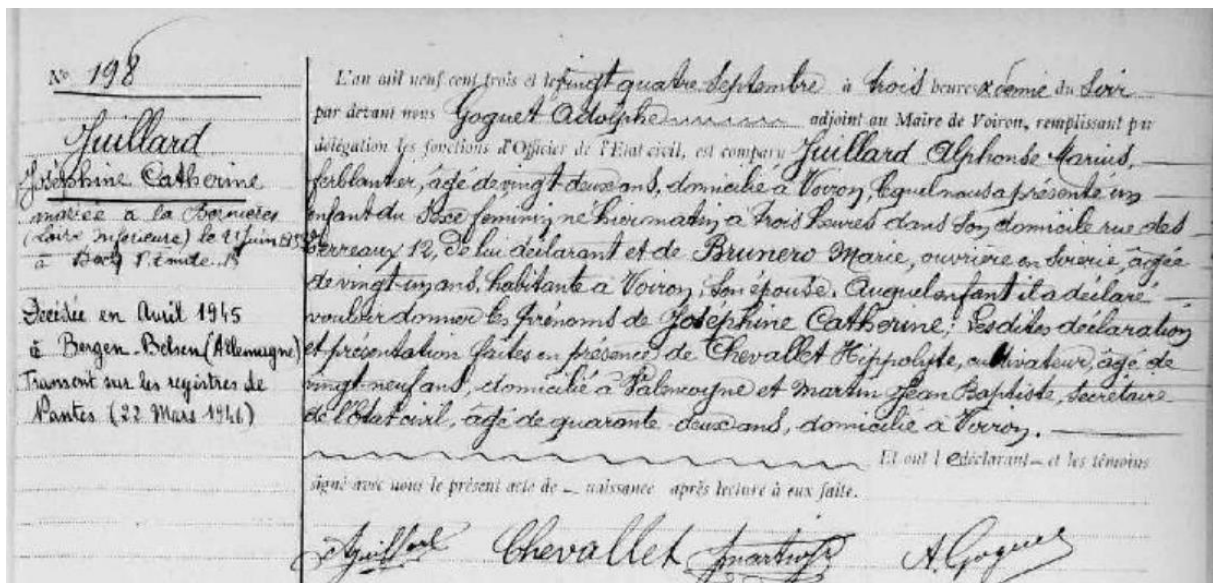 No 198
Juillard
Joséphine Catherine
mariée à la Bernières
(Loire Inférieure) le Juin
à
Décédée en Avril 1945
à Bergen-Belsen (Allemagne)
Transcrit sur les registres de
Nantes (22 Mars 1946)
L'an mil neuf cent trois et le vingt quatre Septembre à trois heures & demie du Soir
par devant nous Goguet Adolphe adjoint au Maire de Voiron, remplissant par
délégation les fonctions d'Officier de l'Etat civil, est comparu Juillard Alphonse Marius,
ferblantier, âgé de vingt-deux ans, domicilié à Voiron, lequel nous a présenté un
enfant du Sexe féminin né hier matin à trois heures dans son domicile rue des
Terreaux 12, De lui déclarant et de Brunero Marie, ouvrière en soierie, âgée
de vingt-un ans, habitante à Voiron, Son épouse. Auquel enfant il a déclaré
vouloir donner les prénoms de Joséphine Catherine; Lesdites déclaration
et présentation faites en présence de Chevallet Hippolyte, cultivateur, âgé de
vingt-neuf ans, domicilié à et Martin Jean Baptiste, secrétaire
de l'Etat civil, âgé de quarante-deux ans, domicilié à Voiron.
Et ont le déclarant et les témoins
signé avec nous le présent acte de naissance après lecture à eux faite.
AJuillard Chevallet Martin A. Goguet